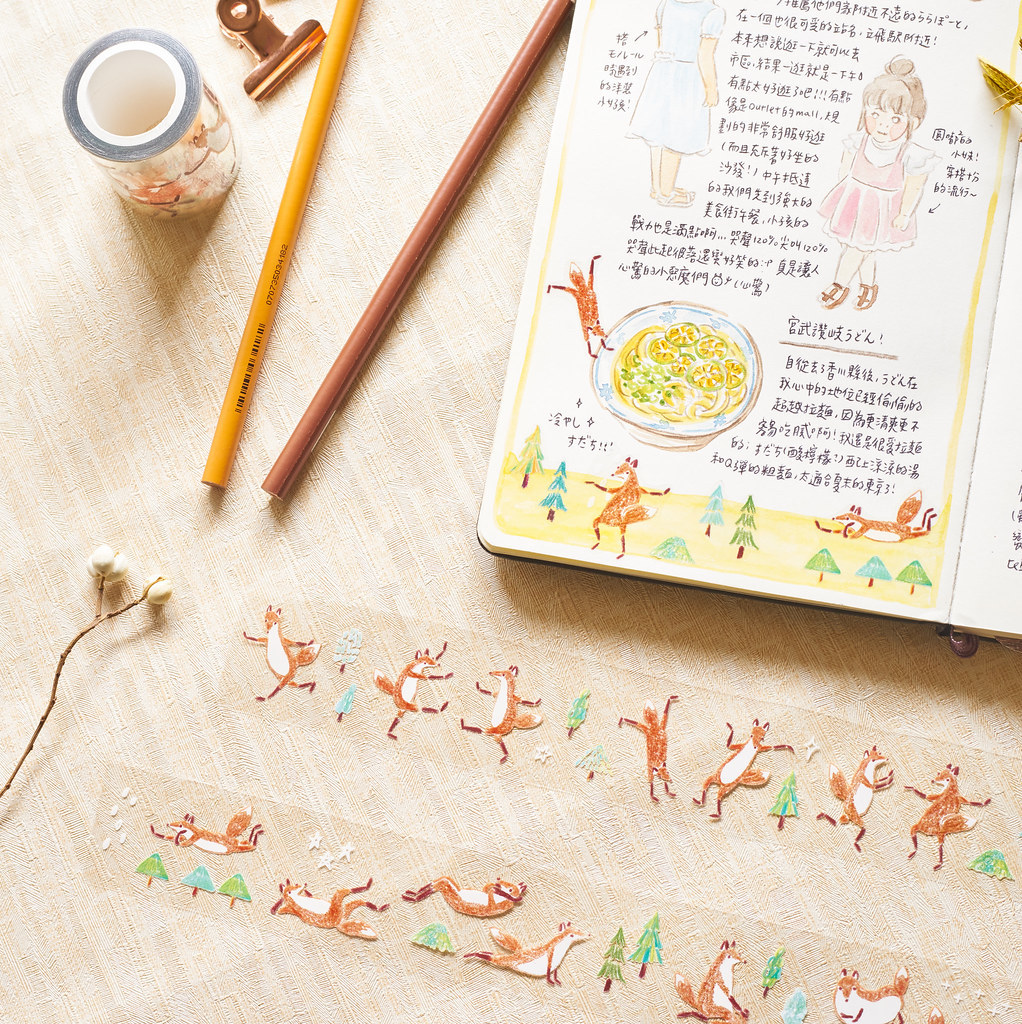 在一個也很可愛的站名,立飛駅附近!
本來想說逛一下就可以去
市區,結果一逛就是一下午
有點太好逛了吧!!!有點
像是ourlet的mall,規
劃的非常舒服好逛
(而且充斥著好坐的
沙發!)中午抵達
的我們先到強大的
美食街午餐,小孩的
戰力也是滿點啊...哭聲120%尖叫120%
哭聲此起彼落還蠻好笑的
真是讓人
心驚的小惡魔們 (心驚)
搭
モノレール
時遇到
的洋裝
小妹!
圓嘟嘟的
小妹!
穿搭
的流行~
宮武讃岐うどん!
自從去了香川縣後,うどん在
我心中的地位已經偷偷的
超越拉麵,因為更清爽更不
容易吃膩啊!我還是很愛拉麵
的;すだち(酸檸檬)配上涼涼的湯
和Q彈的粗麵,太適合夏末的東京了!
冷やし
すだち!!
070735034102